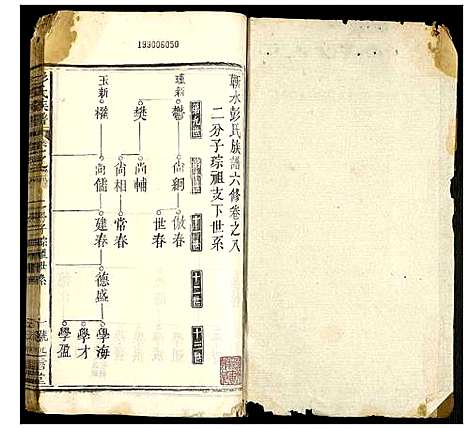 193006050
蘄水彭氏族譜六修卷之八
二分子琮祖支下世系
第九世
十世
十一世
十二世
十三世
璉新
鬱
尚綱
倣春
世春
樊
尚輔
玉新
櫂
尚相
常春
尚儒
建春
德盛
學海
學才
學盈
彭氏族譜